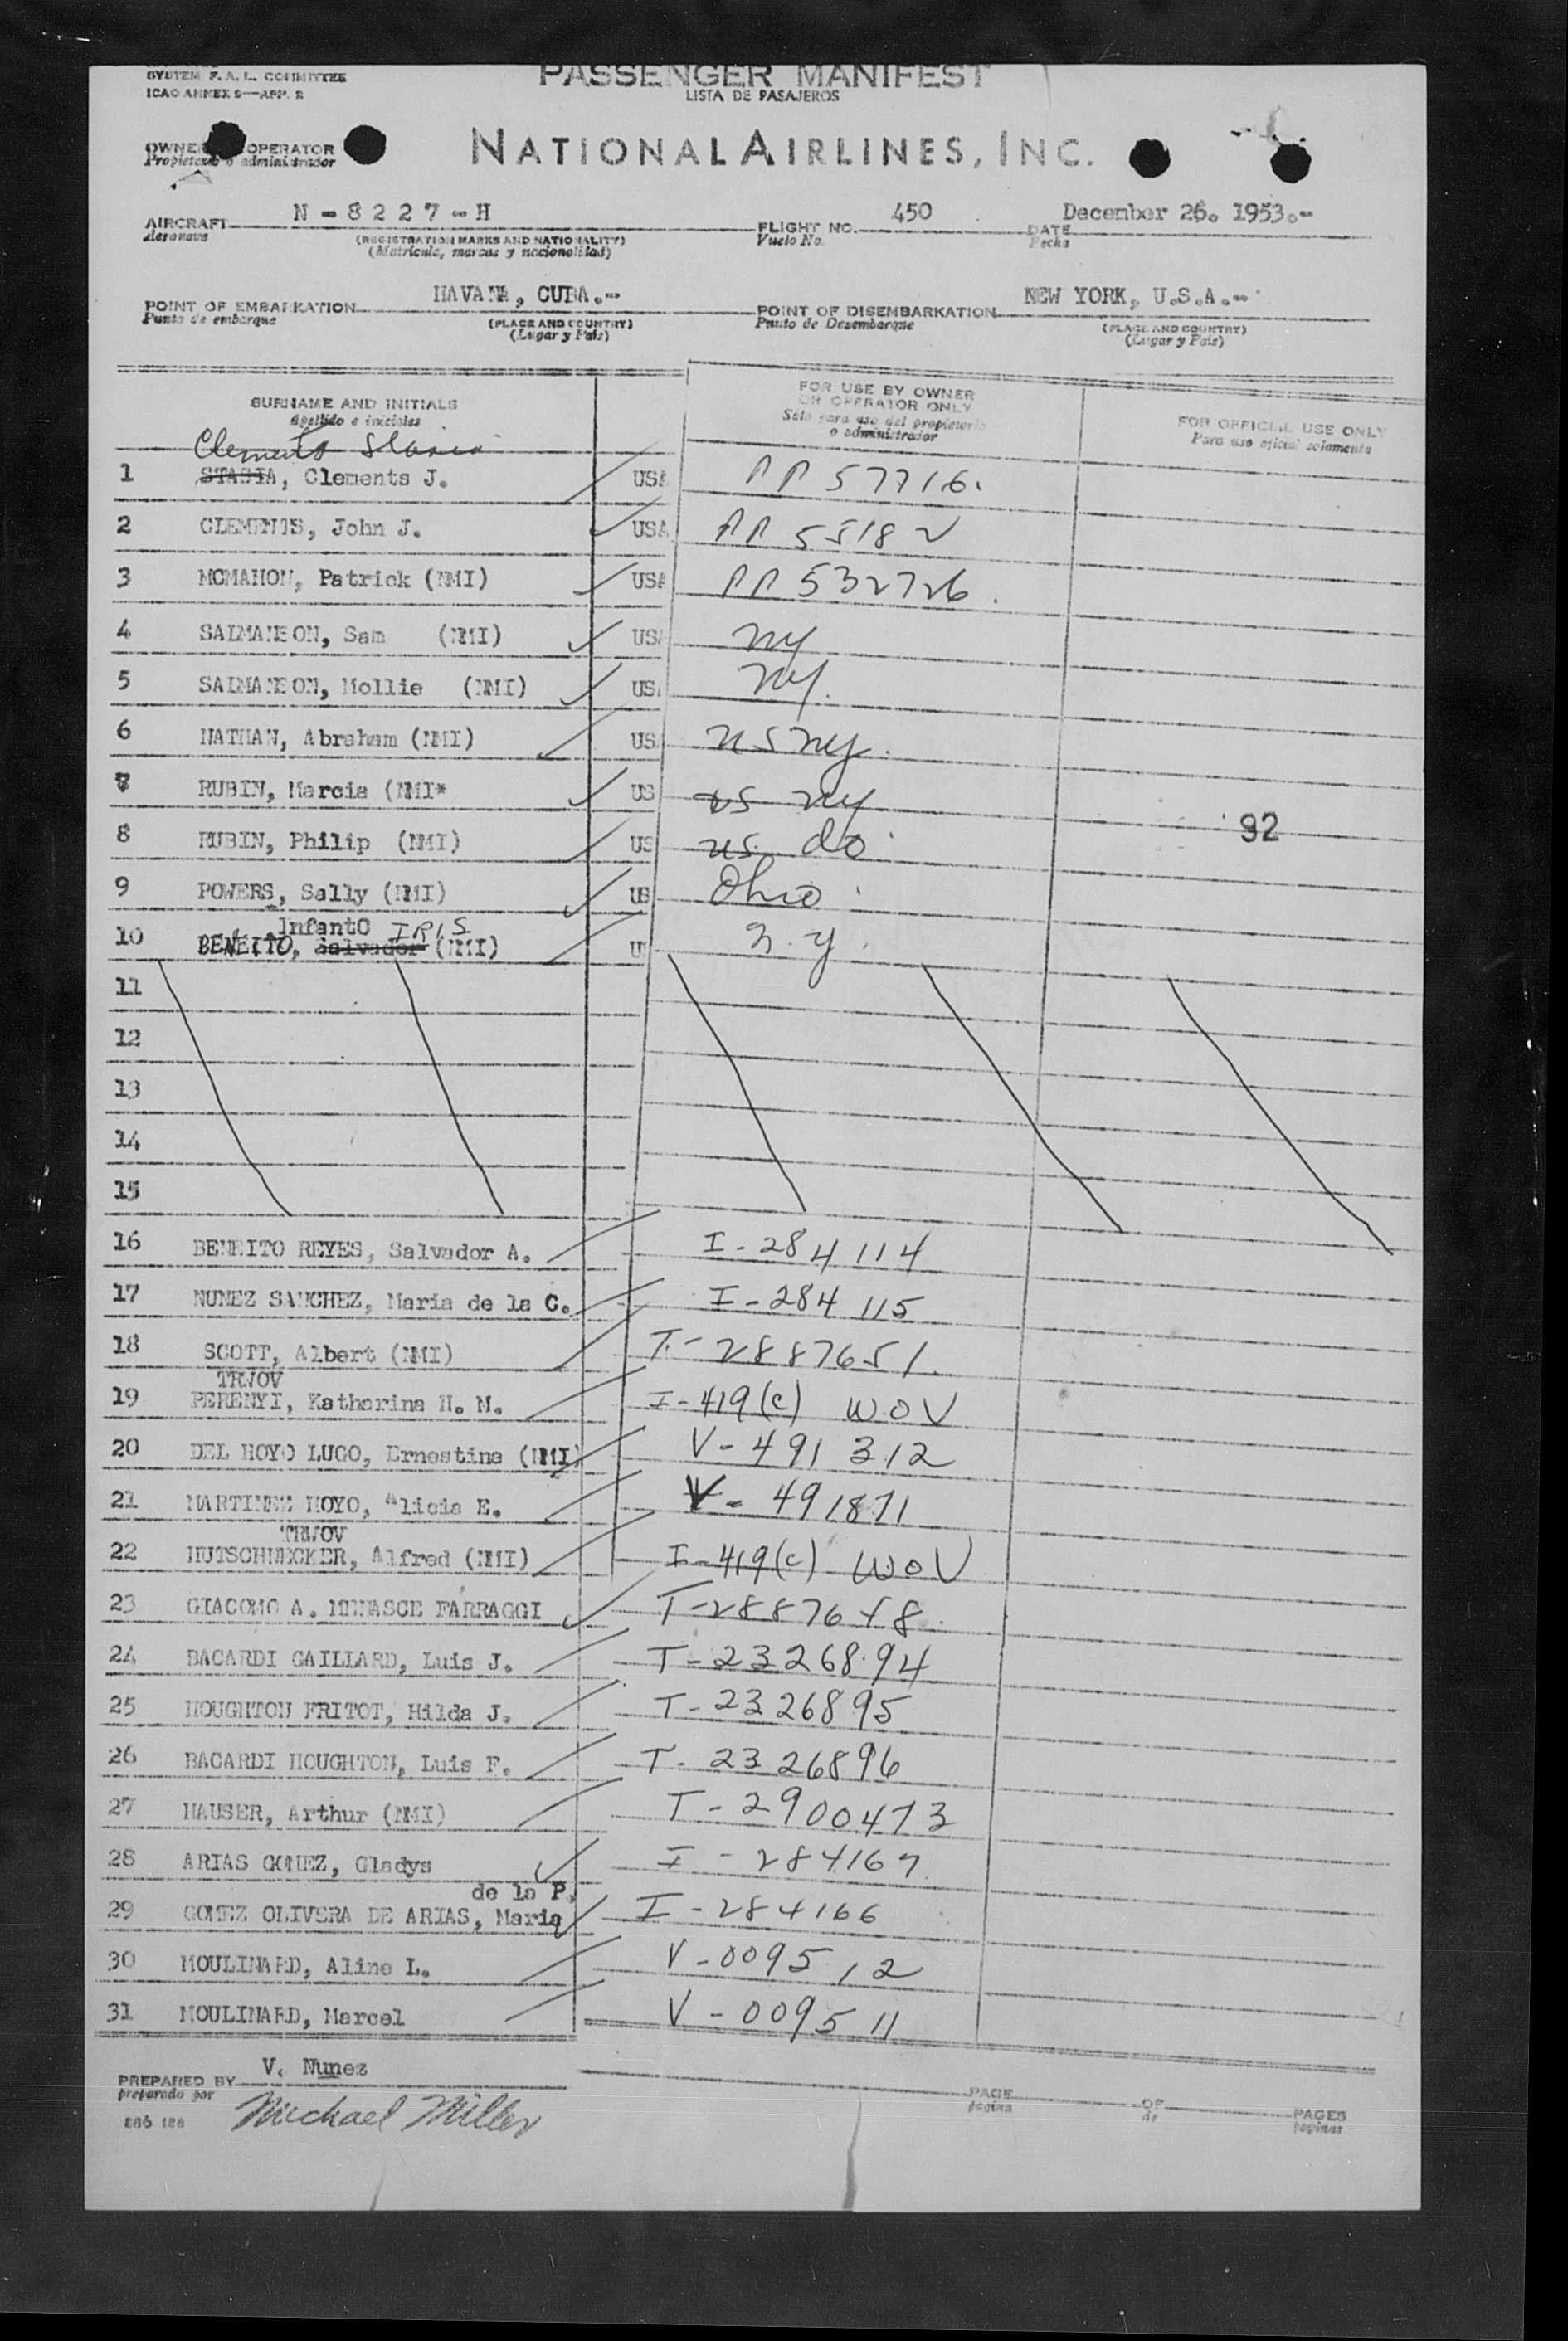 SYSTEM F.A.L. COMMITTEE
ICAO ANNEX 9—APP. 2
PASSENGER MANIFEST
LISTA DE PASAJEROS
OWNER OPERATOR
Propietario o administrador
NATIONAL AIRLINES, INC.
AIRCRAFT N - 8 2 2 7 - H
Aeronave
(REGISTRATION MARKS AND NATIONALITY)
(Matricula, marcas y nacionalidad)
FLIGHT NO. 450
Vuelo No.
DATE December 26. 1953.-
Fecha
POINT OF EMBARKATION HAVANA, CUBA.-
Punto de embarque
(PLACE AND COUNTRY)
(Lugar y Pais)
POINT OF DISEMBARKATION NEW YORK, U.S.A.-
Punto de Desembarque
(PLACE AND COUNTRY)
(Lugar y Pais)
SURNAME AND INITIALS
Apellido e iniciales
FOR USE BY OWNER
OR OPERATOR ONLY
Sólo para uso del propietario
o administrador
FOR OFFICIAL USE ONLY
Para uso oficial solamente
Clements Stasia
1 STASIA, Clements J. USA PP 57716.
2 CLEMENTS, John J. USA PP 55182
3 MCMAHON, Patrick (NMI) USA PP 532726.
4 SALMANSON, Sam (NMI) USA NY
5 SALMANSON, Mollie (NMI) US NY.
6 NATHAN, Abraham (NMI) US US NY.
7 RUBIN, Marcia (NMI* US US NY
8 RUBIN, Philip (NMI) US US. do
92
9 POWERS, Sally (NMI) US Ohio
InfantO IRIS
10 BENEITO, Salvador (NMI) U N.Y.
11
12
13
14
15
16 BENEITO REYES, Salvador A. I-284114
17 NUNEZ SANCHEZ, Maria de la C. I-284115
18 SCOTT, Albert (NMI) T-2887651.
TRWOV
19 PERENYI, Katharina H. M. I-419(c) WOV
20 DEL HOYO LUGO, Ernestina (NMI) V-491312
21 MARTINEZ HOYO, Alicia E. V-491871
TRWOV
22 HUTSCHNECKER, Alfred (NMI) I-419(c) WOV
23 GIACOMO A. MENASCE FARRAGGI
24 BACARDI GAILLARD, Luis J. T-2326894
25 HOUGHTON FRITOT, Hilda J. T-2326895
26 BACARDI HOUGHTON, Luis F. T-2326896
27 HAUSER, Arthur (NMI) T-2900473
28 ARIAS GOMEZ, Gladys I-284167
de la P.
29 GOMEZ OLIVERA DE ARIAS, Maria I-284166
30 MOULINARD, Aline L. V-009512
31 MOULINARD, Marcel V-009511
PREPARED BY V. Nunez
preparado por
886 188 Michael Miller
PAGE OF PAGES
pagina de paginas